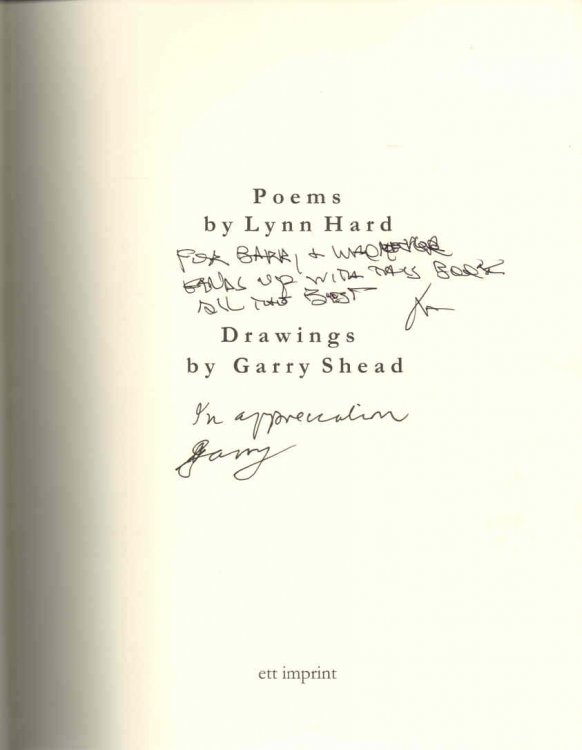 Poems
by Lynn Hard
FOR BARRY & WHOEVER
ENDS UP WITH THIS BOOK
ALL THE BEST
Drawings
by Garry Shead
In appreciation
Garry
ett imprint